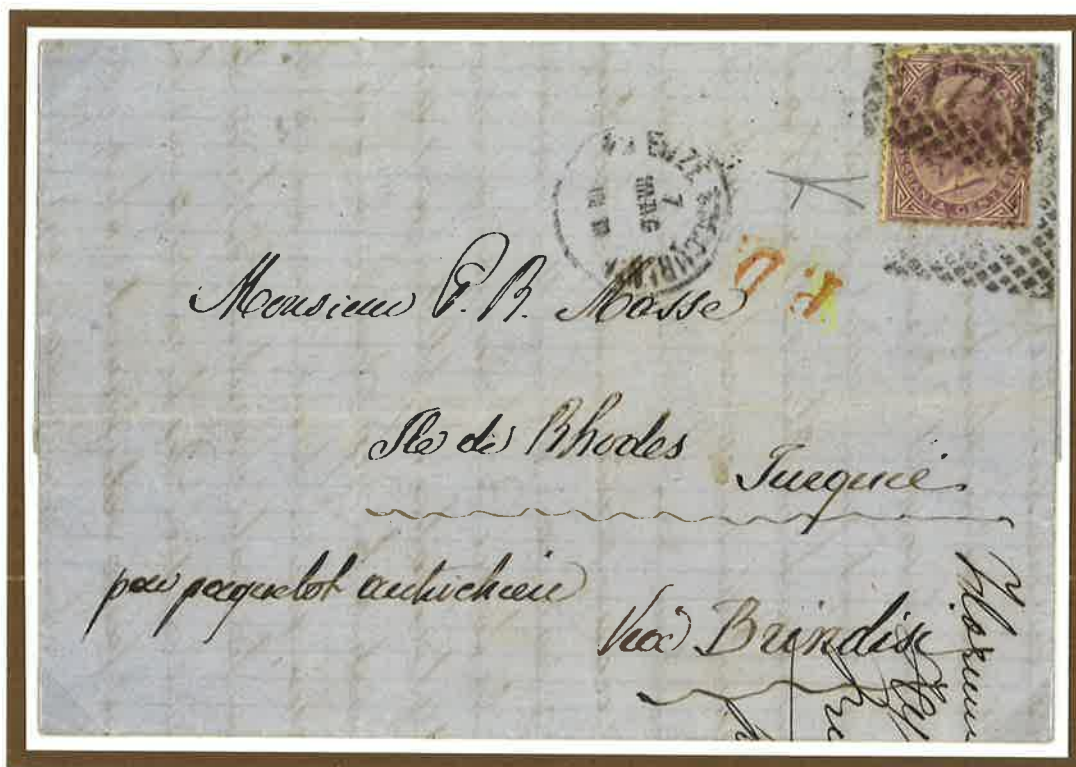 7
MAG
P. D.
Monsieur P. R. Masse
Ile de Rhodes
Turquie
par paquebot autrichien
Via Brindisi